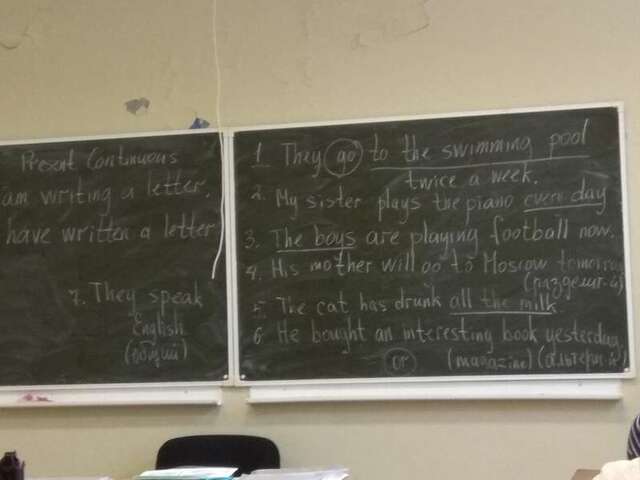 Present Continuous
am writing a letter.
have written a letter
7. They speak
English
(общий)
1. They go to the swimming pool
twice a week.
2. My sister plays the piano every day
3. The boys are playing football now.
4. His mother will go to Moscow tomorrow
(разделит.й)
5. The cat has drunk all the milk.
6 He bought an interesting book yesterday.
or (magazine) (альтерн.й)